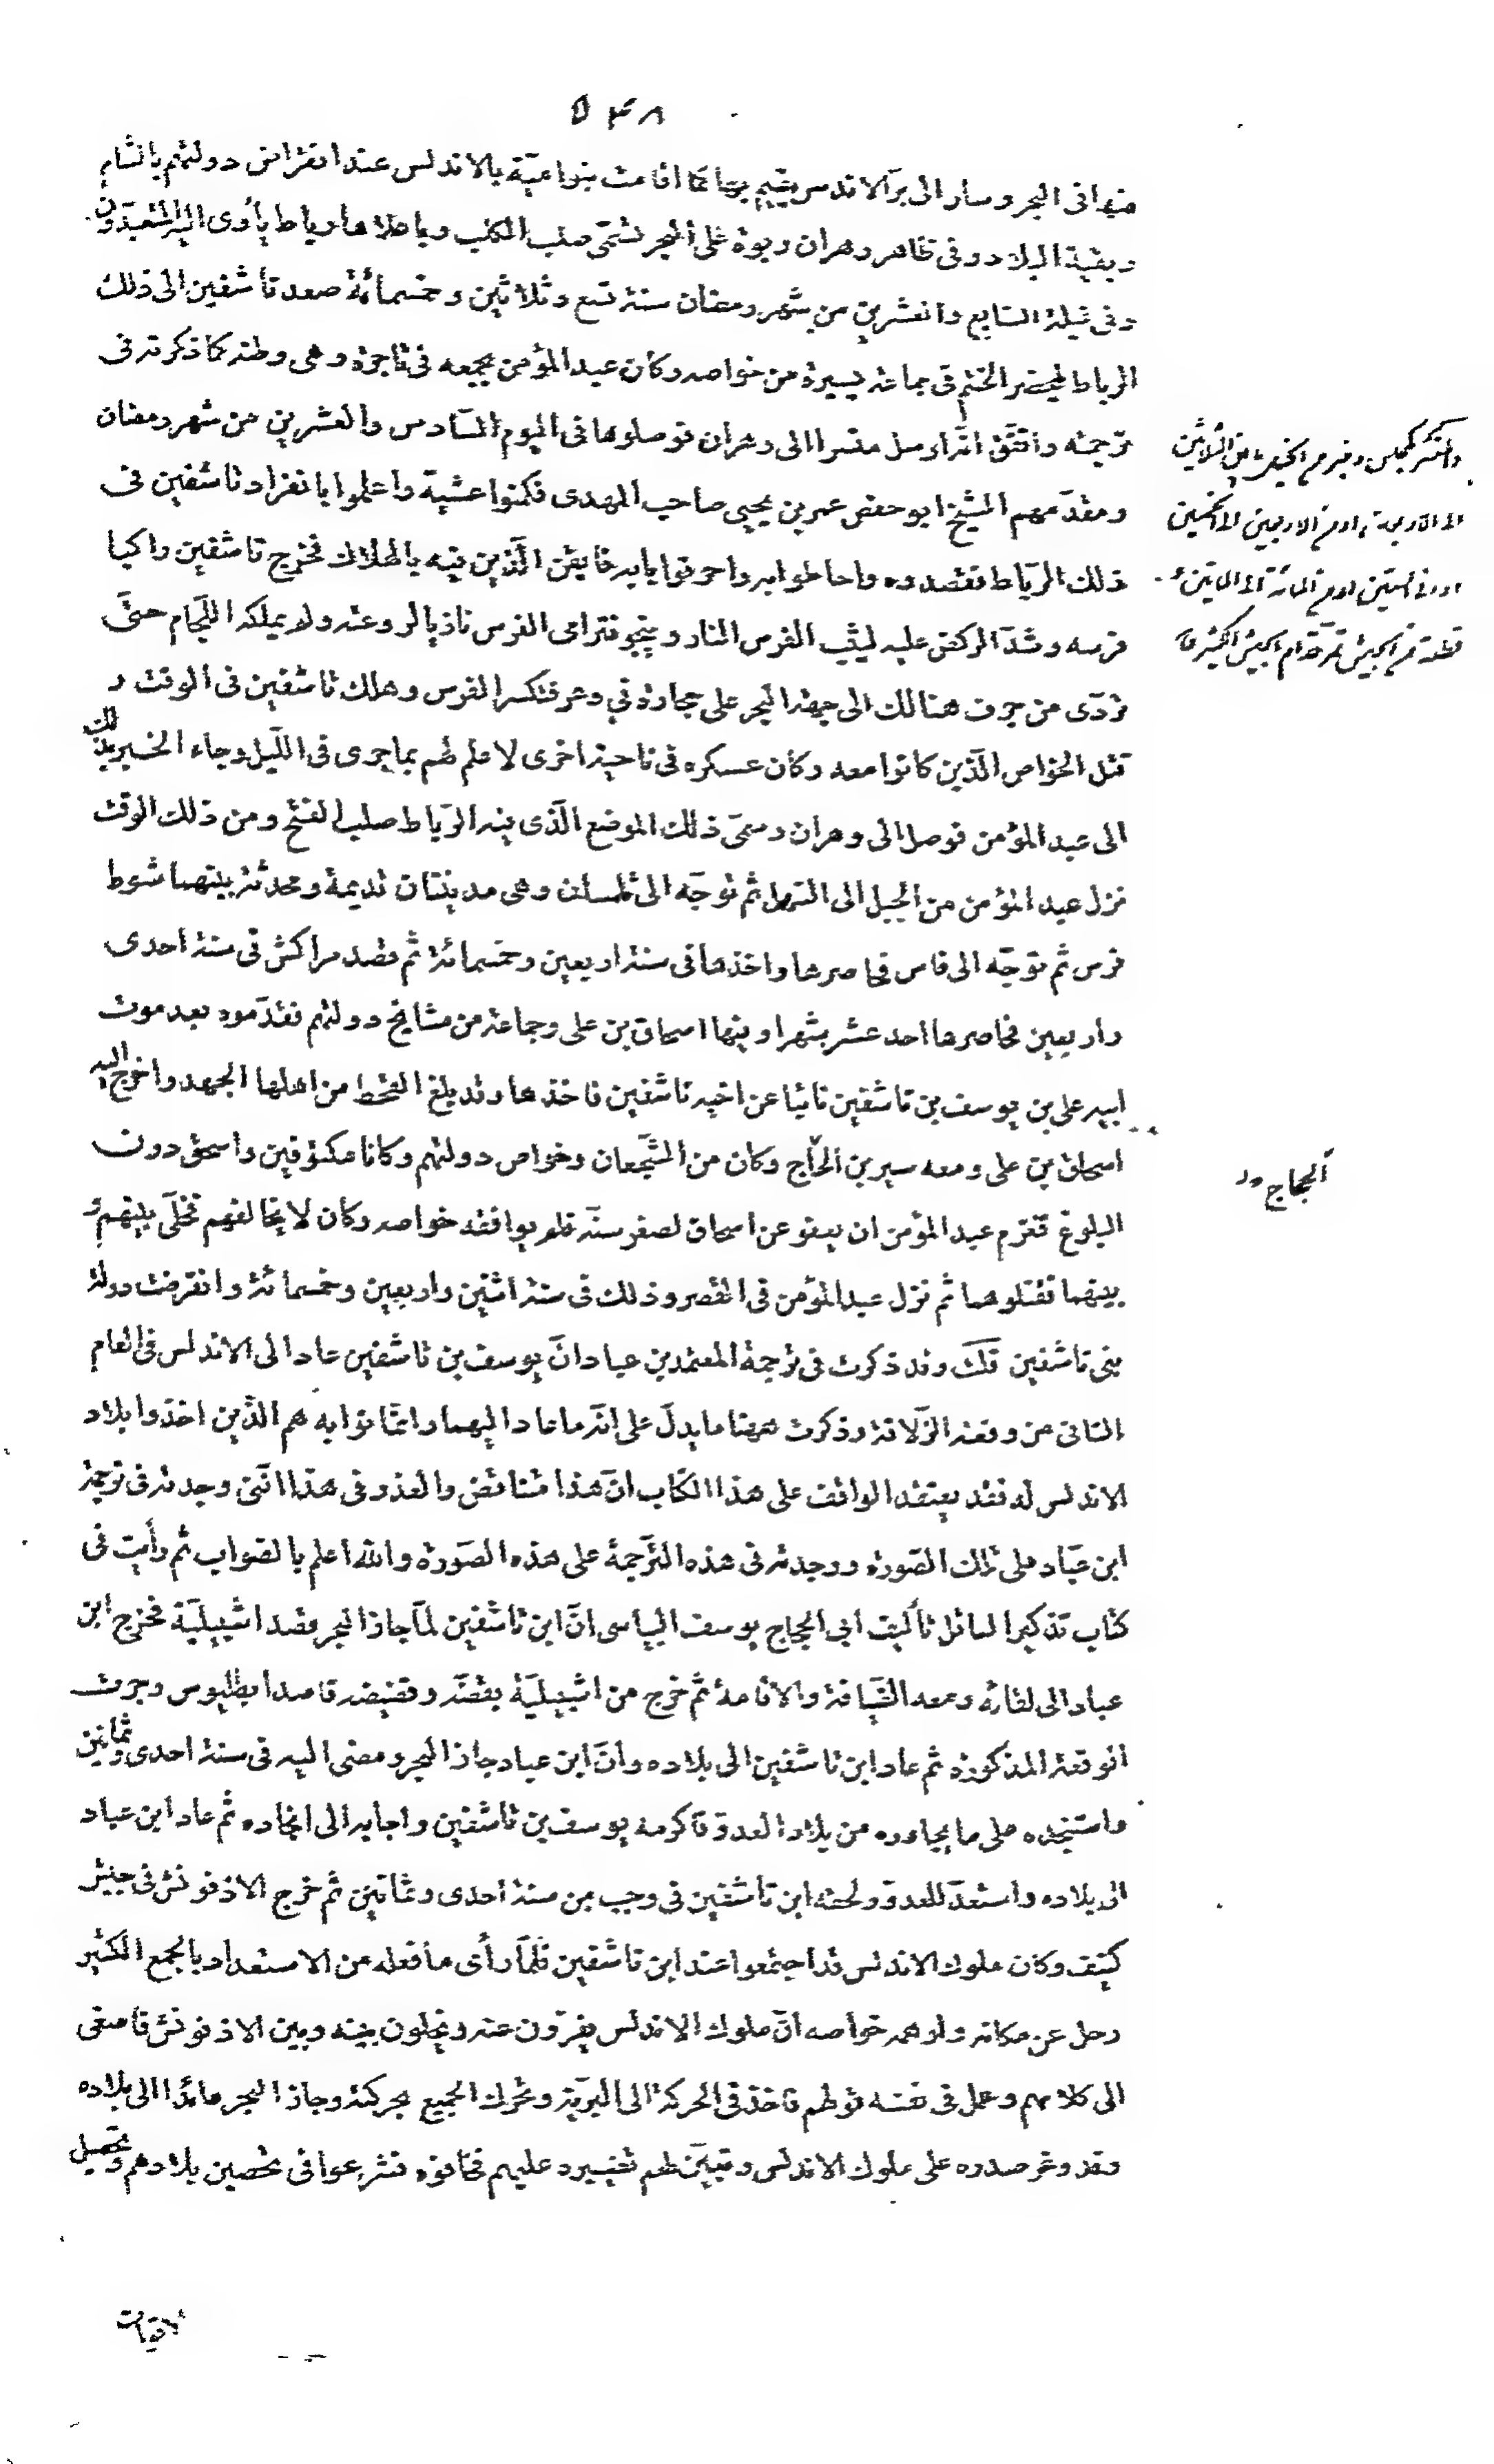 ٥٤٨
منها فى البحر وسار الى بر الاندلس يقيم بها كما اقامت بنوا ميّة بالاندلس عند انقراض دولتهم بالشام
وبقية البلاد وفى ظاهر وهران ربوة على البحر تسمّى صلب الكلب وباعلاها رباط يأوى اليه المتعبّدون
وفى ليلة السابع والعشرين من شهر رمضان سنة تسع وثلاثين وخمسمائة صعد تاشفين الى ذلك
الرباط ليحضر الختم فى جماعة يسيرة من خواصه وكان عبد المؤمن بجمعه فى تاجرة وهى وطنه كما ذكرته فى
ترجمته واتّفق انّه ارسل منسرا الى وهران فوصلوها فى اليوم السّادس والعشرين من شهر رمضان
ومقدّمهم الشيخ ابو حفص عمر بن يحيى صاحب المهدى فكمنوا عشيّة واعلموا بانفراد تاشفين فى
ذلك الرّباط فقصدوه واحاطوا به واحرقوا بابه فايقن الّذين فيه بالهلاك فخرج تاشفين راكبا
فرسه وشدّ الركض عليه ليثب الفرس النار وينجو فترامى الفرس نازيا لروعته ولم يملكه اللّجام حتّى
تردّى من جرف هنالك الى جهة البحر على حجارة فى وعر فتكسر الفرس وهلك تاشفين فى الوقت و
قتل الخواص الّذين كانوا معه وكان عسكره فى ناحية اخرى لا علم لهم بما جرى فى اللّيل وجاء الخبر بذلك
الى عبد المؤمن فوصل الى وهران وسمّى ذلك الموضع الّذى فيه الرّباط صلب الفتح ومن ذلك الوقت
نزل عبد المؤمن من الجبل الى السّهل ثم توجّه الى تلمسان وهى مدينتان قديمة ومحدثة بينهما شوط
فرس ثم توجّه الى فاس فحاصرها واخذها فى سنة اربعين وخمسمائة ثم قصد مراكش فى سنة احدى
واربعين فحاصرها احد عشر شهرا وفيها اسحاق بن على وجماعة من مشايخ دولتهم فقدّموه بعد موت
ابيه على بن يوسف بن تاشفين نائبا عن اخيه تاشفين فاخذها وقد بلغ القحط من اهلها الجهد واخرج اليه
اسحاق بن على ومعه سير بن الحاج وكان من الشّجعان وخواص دولتهم وكانا مكتوفين واسحق دون
البلوغ فعزم عبد المؤمن ان يعفو عن اسحاق لصغر سنّه فلم يوافقه خواصه وكان لا يخالفهم فخلّى بينهم و
بينهما فقتلوهما ثم نزل عبد المؤمن فى القصر وذلك فى سنة اثنين واربعين وخمسمائة وانقرضت دولة
بنى تاشفين قلت وقد ذكرت فى ترجمة المعتمد بن عباد انّ يوسف بن تاشفين عاد الى الاندلس فى العام
الثانى من وقعة الزلاقة وذكرت ههنا ما يدلّ على انّه ما عاد اليهما وانّما نوابه هم الّذين اخذوا بلاد
الاندلس له فقد يعتقد الواقف على هذا الكتاب انّ هذا متناقض والعذر فى هذا انّنى وجدته فى ترجمة
ابن عبّاد على تلك الصّورة ووجدته فى هذه التّرجمة على هذه الصّورة والله اعلم بالصّواب ثم رأيت فى
كتاب تذكير العاقل تأليف ابى الحجاج يوسف البياسى انّ ابن تاشفين لمّا جاز البحر قصد اشبيليّة فخرج ابن
عباد الى لقائه ومعه الضّيافة والاقامة ثم خرج من اشبيليّة بقضّه وقضيضه قاصدا بطليوس وجرت
الوقعة المذكورة ثم عاد ابن تاشفين الى بلاده وانّ ابن عباد جاز البحر ومضى اليه فى سنة احدى وثمانين
واستنجده على ما يجاوره من بلاد العدوّ فاكرمه يوسف بن تاشفين واجابه الى انجاده ثم عاد ابن عباد
الى بلاده واستعدّ للعدوّ ولحقه ابن تاشفين فى رجب من سنة احدى وثمانين ثم خرج الاذفونش فى جيش
كثيف وكان ملوك الاندلس قد اجتمعوا عند ابن تاشفين فلمّا رأى ما فعله من الاستعداد بالجمع الكثير
رحل عن مكانه واوهمه خواصه انّ ملوك الاندلس يفرّون عنه ويخلون بينه وبين الاذفونش فاصغى
الى كلامهم وعمل فى نفسه قولهم فاخذ فى الحركة الى البريّة وتحرك الجميع بحركته وجاز البحر عائدا الى بلاده
وقد وغر صدره على ملوك الاندلس وتبيّن لهم تغيره عليهم فخافوه فشرعوا فى تحصين بلادهم وتحصيل
والمنسر كمجلس ومنبر من الخيل ما بين الثلاثين
الى الاربعين او من الاربعين الى الخمسين
او الى الستين او من المائة الى المائتين و
قطعة من الجيش تمر قدام الجيش الكثير ق
الحجاج
الاقوات